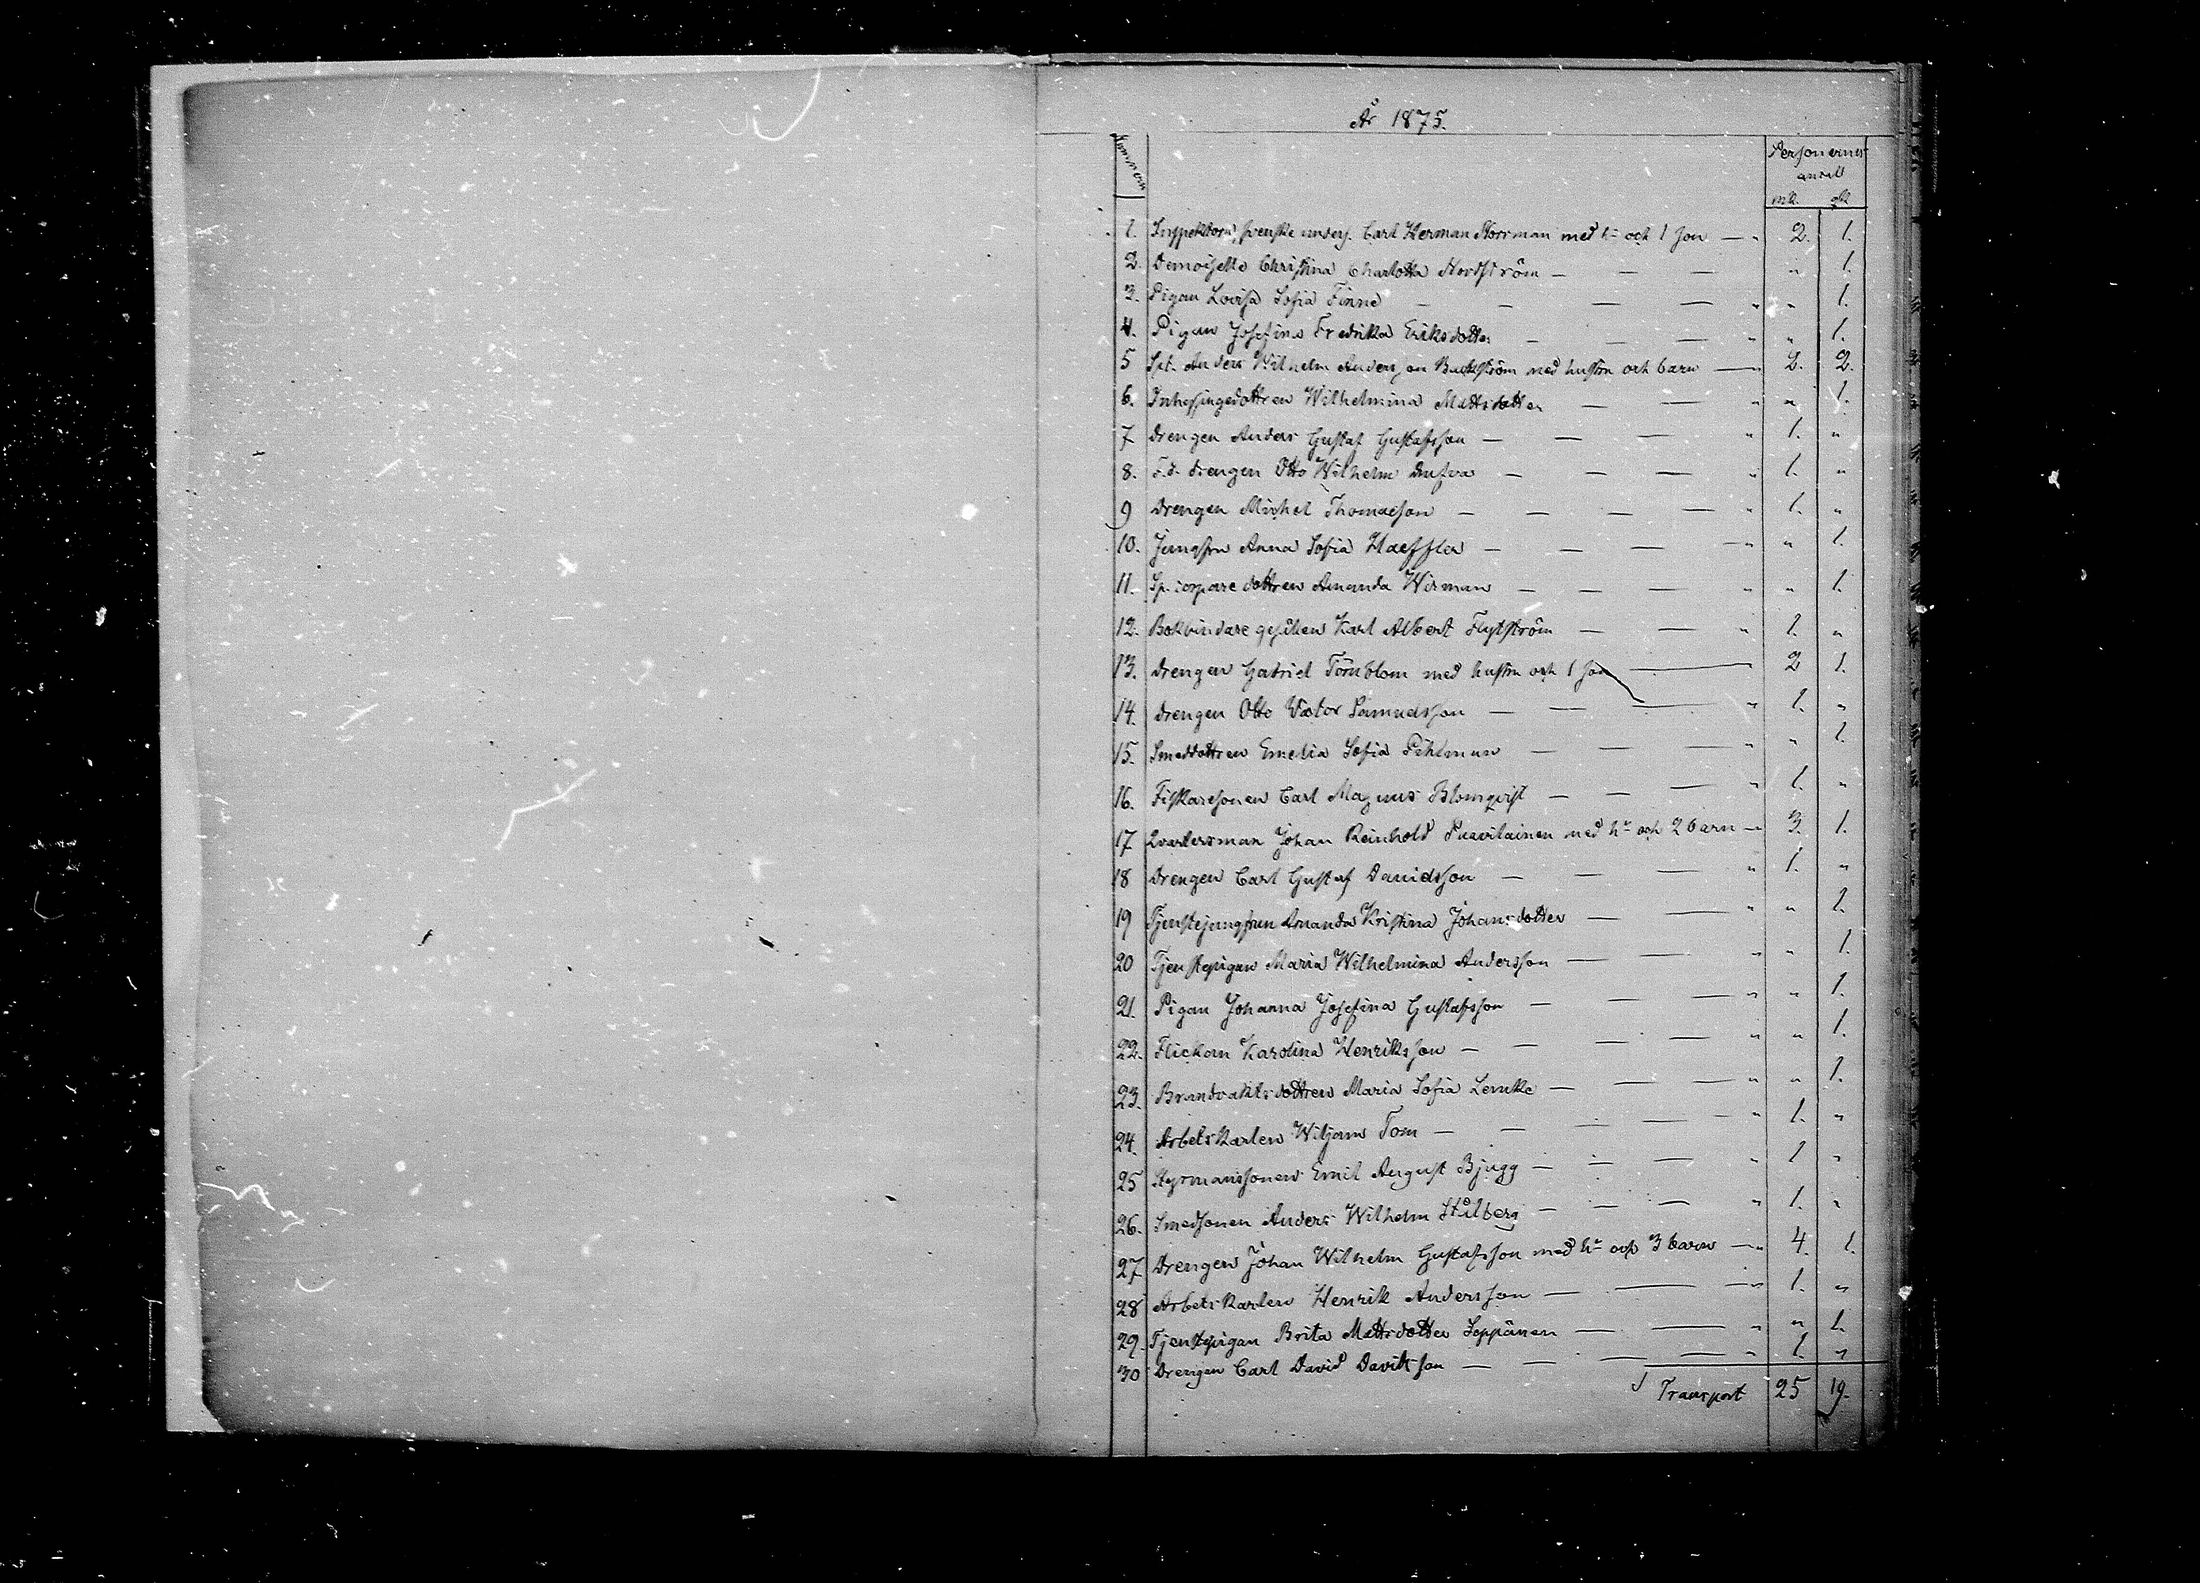 År 1875.
Nummern
Personernes
antal
mk. qk.
1. Inspektorn, svenske unders. Carl Herman Norrman med h- och 1 son — " 2. 1.
2. Demoiselle Christina Charlotta Nordström — — — " 1.
3. Pigan Lovisa Sofia Finne — — — — " " 1.
4. Pigan Josefina Fredrika Eriksdotter — — — " " 1.
5 Anders Wilhelm Andersson Backström med hustru och barn — 2. 2.
6. Inhysingedottren Wilhelmina Mattsdotter — — " " 1.
7 Drengen Anders Gustaf Gustafsson — — — " 1. "
8. F.d. drengen Otto Wilhelm Dufva — — — " 1. "
9 Drengen Michel Thomasson — — — — " 1. "
10. Jungfru Anna Sofia Haeffler — — — — " " 1.
11. dottren Amanda Wirman — — — " " 1.
12. Bokbindare gesällen Karl Albert Flytström — — " 1. "
13. Drengen Gabriel Törnblom med hustru och 1 son — 2 1.
14. Drengen Otto Victor Samuelsson — — — " 1. "
15. Smeddottren Emelia Sofia Pihlman — — — " " 1.
16. Fiskaresonen Carl Magnus Blomqvist — — — " 1. "
17 Qvartersman Johan Reinhold Puavilainen med h- och 2 barn — 3. 1.
18 Drengen Carl Gustaf Davidsson — — — " 1. "
19 Tjenstejungfrun Amanda Kristina Johansdotter — — " " 1.
20 Tjenstepigan Maria Wilhelmina Andersson — — — " " 1.
21. Pigan Johanna Josefina Gustafsson — — — " " 1.
22. Flickan Karolina Henriksson — — — — " " 1.
23. Brandvaktsdottren Maria Sofia Lemke — — — " " 1.
24. Arbetskarlen Wiljam Tom — — — — " 1. "
25 Styrmanssonen Emil August Bjugg — — — " 1 "
26. Smedsonen Anders Wilhelm Stålberg — — — — " 1. "
27 Drengen Johan Wilhelm Gustafsson med h- och 3 barn — " 4. 1.
28 Arbetskarlen Henrik Andersson — — — " 1. "
29. Tjenstepigan Brita Mattsdotter Seppänen — — " " 1.
30 Drengen Carl David Davidsson — — — — " 1. "
Transport 25 19.